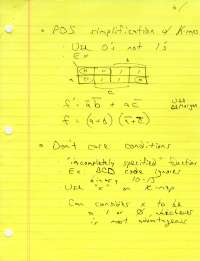 • POS simplification w/ K-maps
Use 0's not 1's
Ex
b
0 0 1 1
a
c
f' = a b + a c
f = (a+b) (a+c)
Use
DeMorgan
• Don't care conditions
"incompletely specified" function
Ex BCD code ignores
binary 10-15
Use "x" on K-map
Can consider x to be
a 1 or 0, whichever
is most advantageous